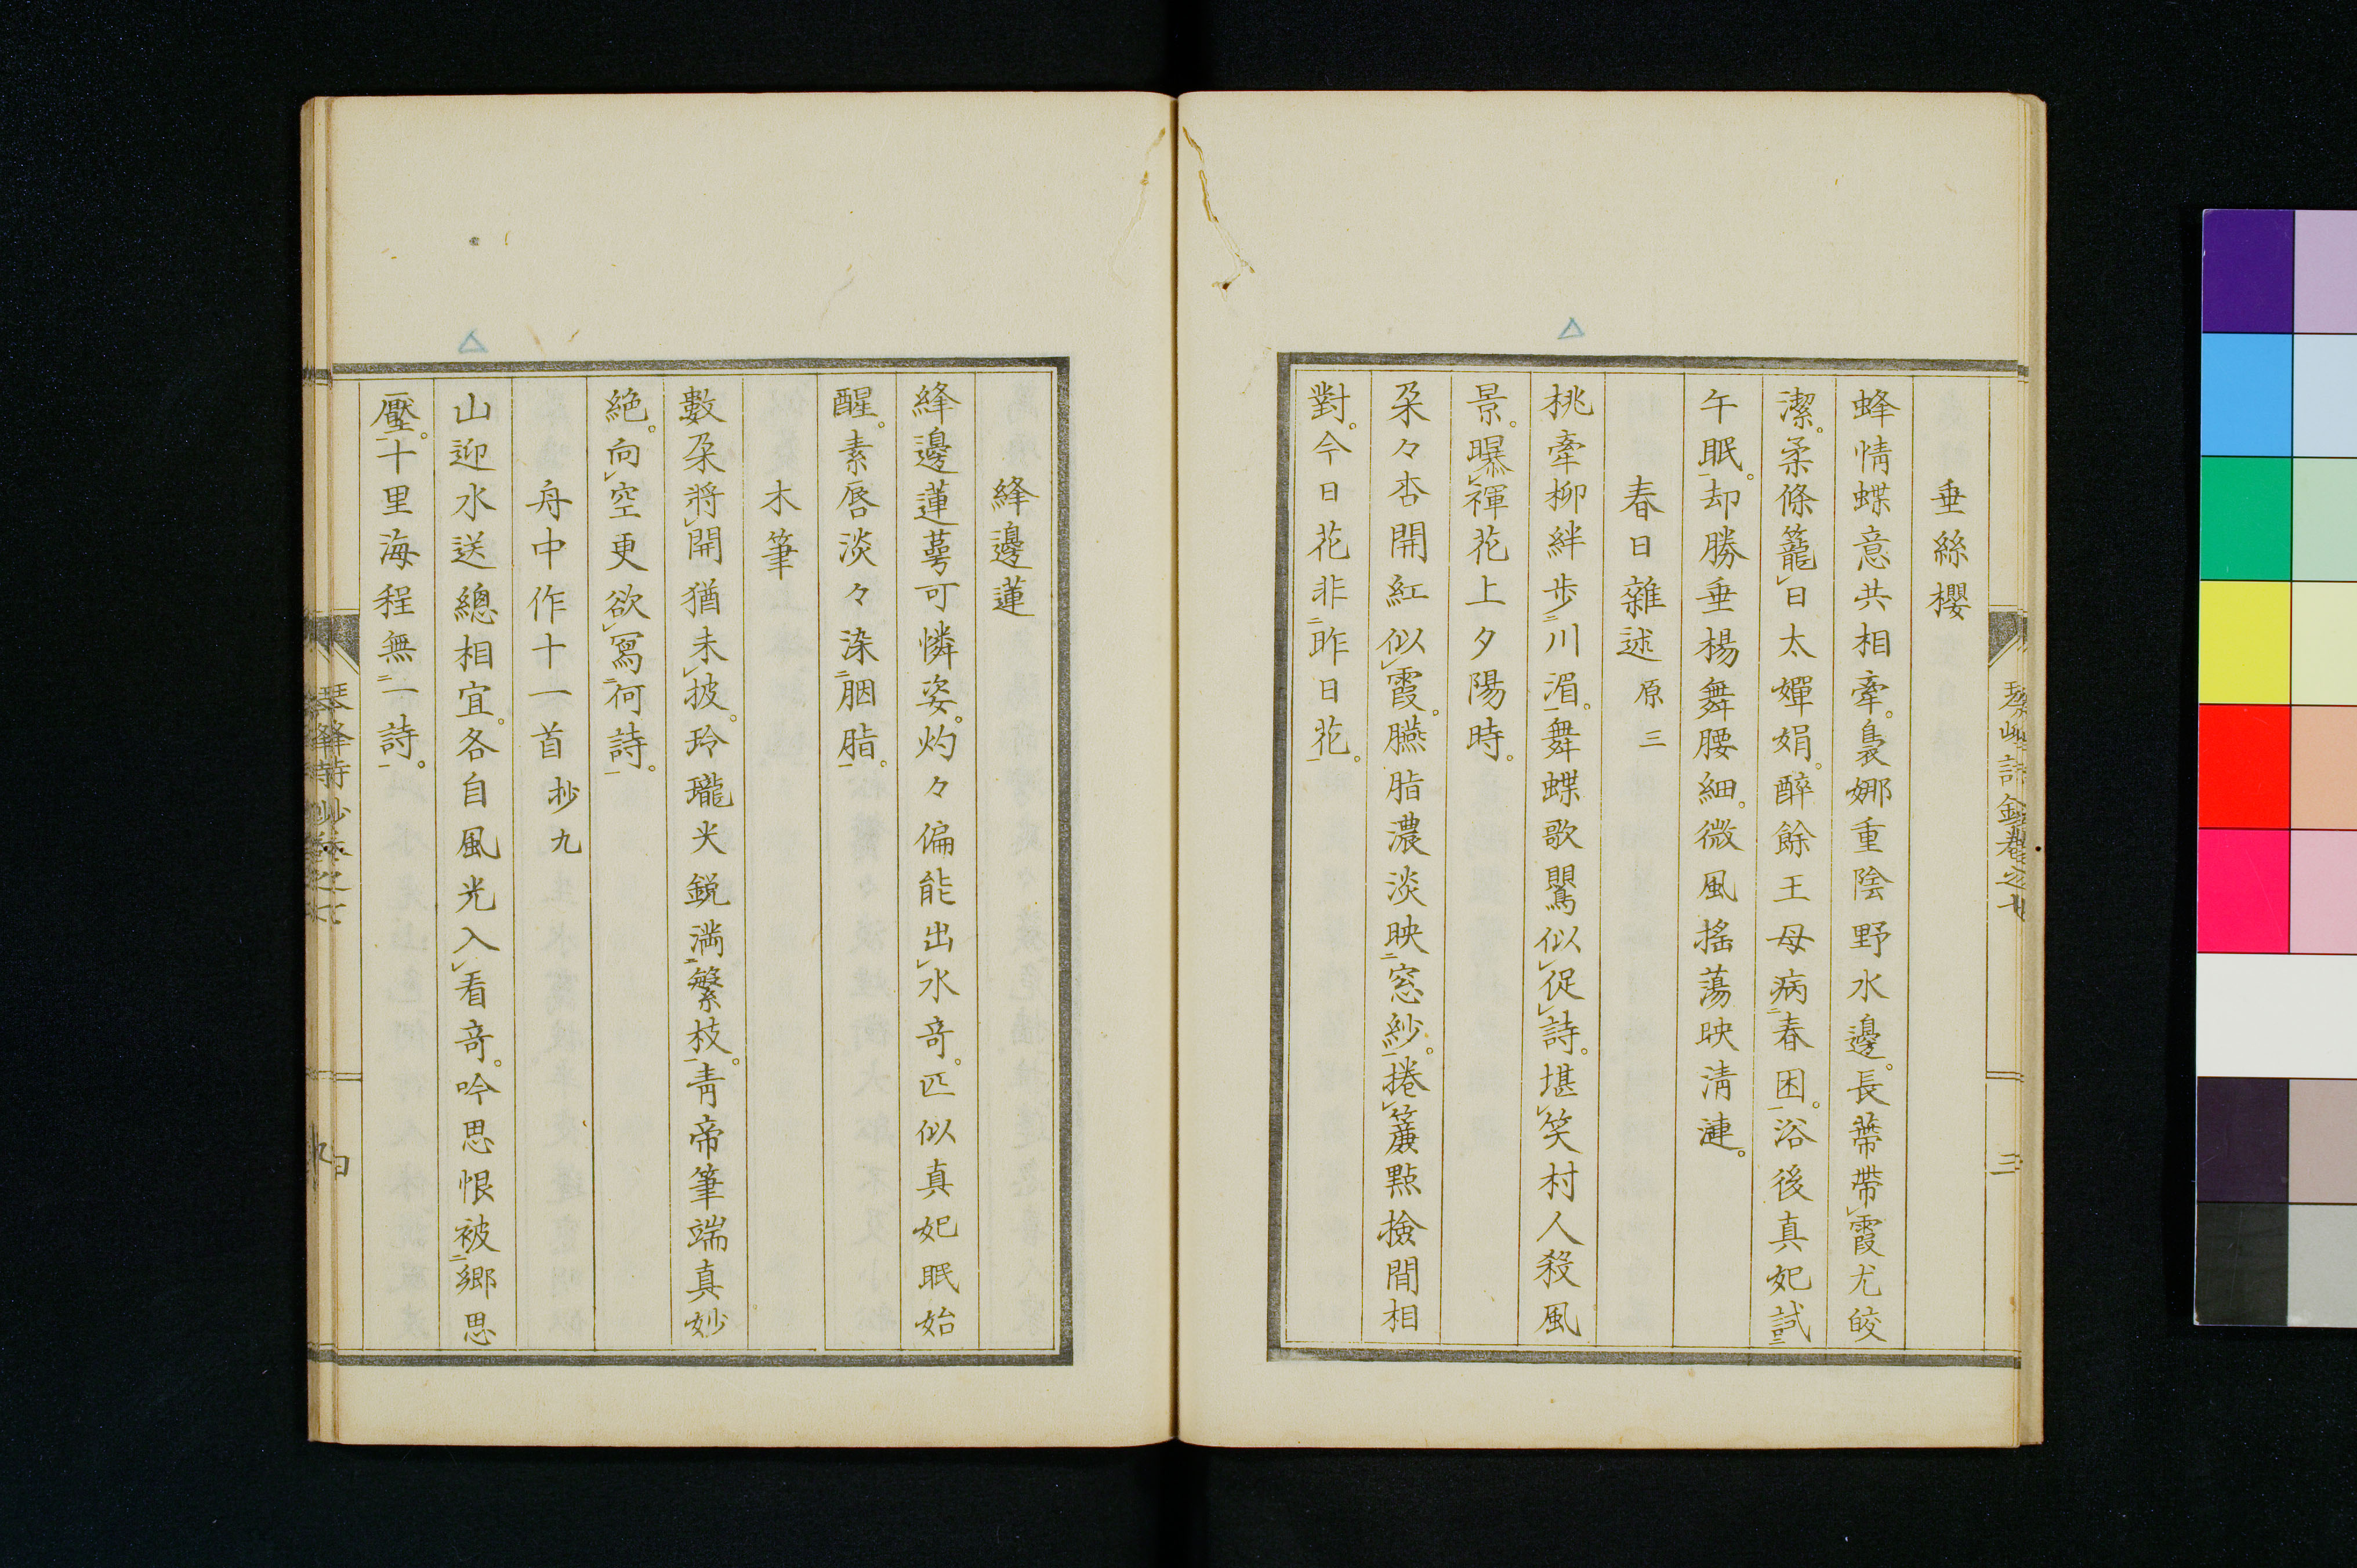 垂絲櫻
蜂情蝶意共相牽。裊娜重陰野水邊。長蔕帶㆑霞尤皎
潔。柔條籠㆑日太嬋娟。醉餘王母病㆓春困㆒。浴後真妃試㆓
午眠㆒。却勝垂楊舞腰細。微風搖蕩映清漣。
春日雜述 原三
桃牽柳絆步㆓川湄㆒。舞蝶歌鸎似㆑促㆑詩。堪㆑笑村人殺風
景。曝㆑褌花上夕陽時。
朶々杏開紅似㆑霞。臙脂濃淡映㆓窓紗㆒。捲㆑簾點撿閒相
對。今日花非㆓昨日花㆒。
三
絳邊蓮
絳邊蓮蕚可憐姿。灼々偏能出㆑水奇。匹似真妃眠始
醒。素唇淡々染㆓胭脂㆒。
木筆
數朶將㆑開猶未㆑披。玲瓏尖鋭満㆓繁枝㆒。青帝筆端真妙
絶。向㆑空更欲㆑寫㆓何詩㆒。
舟中作十一首 抄九
山迎水送總相宜。各自風光入㆑看奇。吟思恨被㆓鄉思
壓㆒。十里海程無㆓一詩㆒。